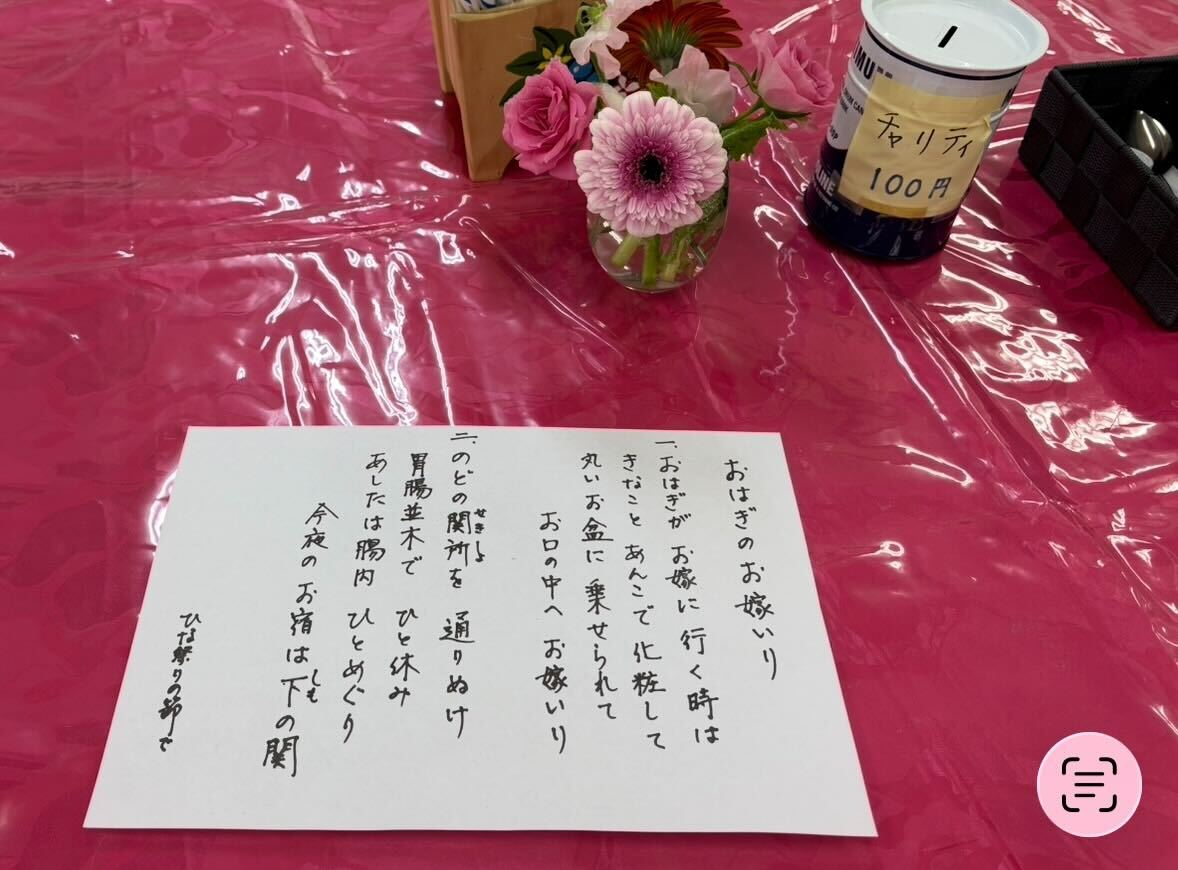 おはぎのお嫁いり
一、おはぎが お嫁に 行く時は
きなこと あんこで 化粧して
丸いお盆に 乗せられて
お口の中へ お嫁いり
二、のどの関所を 通りぬけ
せきしょ
胃腸並木で ひと休み
あしたは腸内 ひとめぐり
今夜の お宿は 下の関
しも
ひな祭りの節で
チャリティ
100円